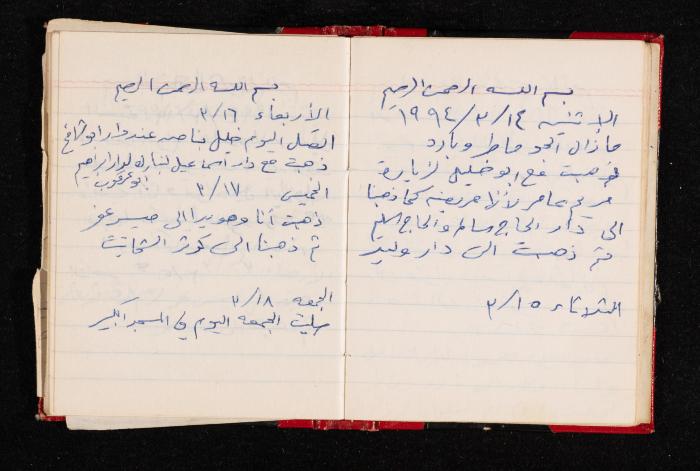 بسم الله الرحمن الرحيم
الاثنين ١٩٩٤/٣/١٤
مازال الجو ماطر وبارد
ذهبت مع ابو خليل لزيارة
مريم عامر لأنها مريضه كما ذهبنا
الى دار الحاج سالم والحاج
ثم ذهبت الى دار وليد
الثلاثاء ٣/١٥
بسم الله الرحمن الرحيم
الأربعاء ٣/١٦
اتصل اليوم خليل ناصر عند دار ابو
ذهبت مع دار اسماعيل لنبارك لدار ابراهيم
ابو عرقوب
الخميس ٣/١٧
ذهبت أنا وهويدا الى
ثم ذهبنا الى كوثر
الجمعه ٣/١٨
صليت الجمعه اليوم في المسجد الكبير